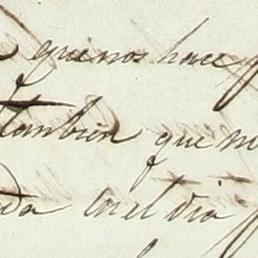 que nos hace
tambien que
en el dia